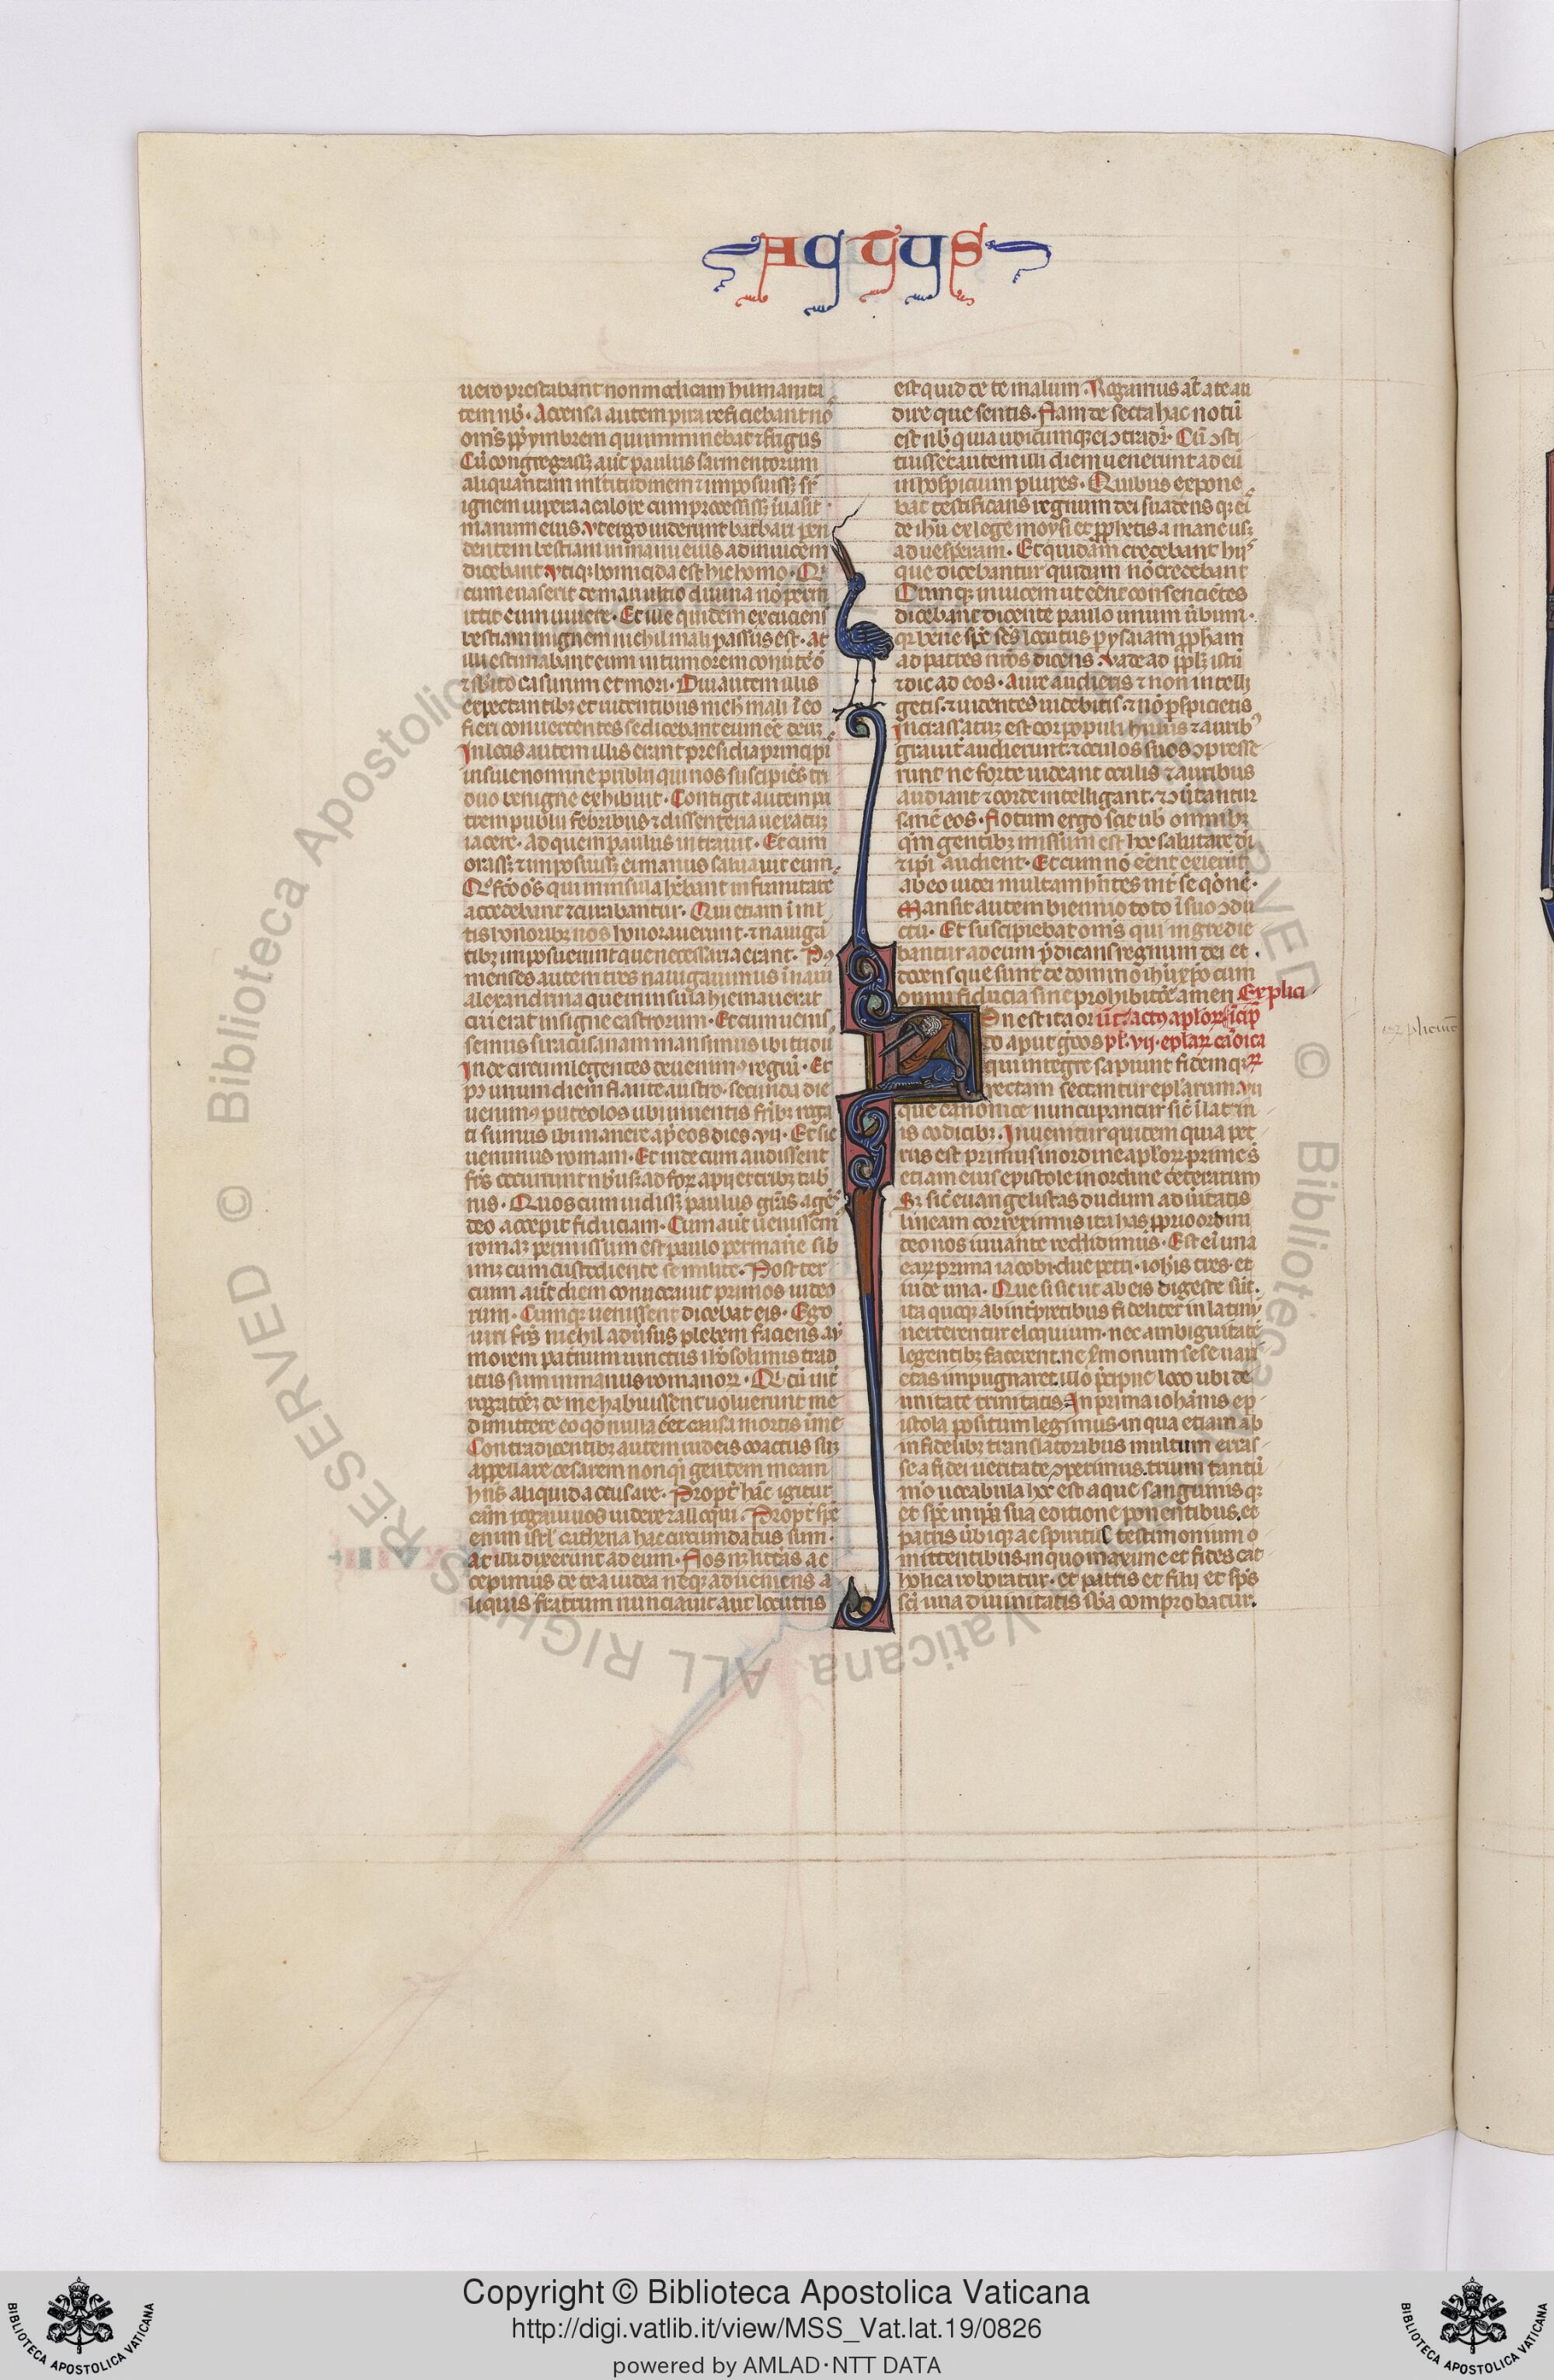 ACTUS
uero prestabant non modicam humanita
tem nob̄. Accensa autem pira reficiebant no
om̄s ꝓpt̄ ymbrem qui imminebat ⁊ frigus
Cū congregassꝫ aut̄ paulus sarmentorum
aliquantam multitudinem ⁊ imposuissꝫ sr̄
ignem uipera a calore cum processissꝫ inuasit
manum eius. Vt ergo uiderunt barbari pen
dentem bestiam in manu eius ad inuicem
dicebant. Vtiqꝫ homicida est hic homo. Qi
cum euaserit de mari ultio diuina nō perm
ittit eum uiuere. Et ille quidem excuciens
bestiam in ignem nichil mali passus est. At
illi estimabant eum in tumorem conuertēdū
⁊ sbito casurum et mori. Diu autem illis
expectantibꝫ et uidentibus nich mali ī eo
fieri conuertentes se dicebant eum eē deuꝫ
In locis autem illis erant predia principi
insule nomine publii qui nos suscipiēs tri
duo benigne exhibuit. Contigit autem pa
trem publii febribus ⁊ dissenteria uexatuꝫ
iacere. ad quem paulus intrauit. Et cum
orassꝫ ⁊ imposuissꝫ ei manus saluauit eum.
Qo fc̄o oēs qui in insula hēbant infirmitate
accedebant ⁊ curabantur. Qui etiam ī ml
tis honoribꝫ nos honorauerunt. ⁊ nauiga
tibꝫ imposuerunt que necessaria erant. Pꝰ
menses autem tres nauigauimus ī naui
alexandrina que in insula hiemauerat
cui erat insigne castrorum. Et cum uenis
semus siracusanam mansimus ibi triduū
Inde circumlegentes deuenimꝰ regiū. Et
pꝰ unum diem flante austro. secunda die
uenimꝰ puteolos ubi inuentis fribꝫ roga
ti sumus ibi manere apd̄ eos dies .vii. Et sic
uenimus romam. Et inde cum audissent
frēs occurrunt nob̄ usqꝫ ad forꝫ apii et tribꝫ tab̄
nis. Quos cum uidissꝫ paulus grās agēs
deo accepit fiduciam. Cum aut̄ uenissem
romaꝫ permissum est paulo permane sib
imꝫ cum custodiente se milite. Post ter
cium aut̄ diem conuocauit primos iudeo
rum. Cumqꝫ uenissent dicebat eis. Ego
uiri frēs nichil aduersus plebem faciens aut
morem paternum uinctus iherosolimis trad
itus sum in manus romanorꝫ. Qi cū int̄
rogatōꝫ de me habuissent uoluerunt me
dimittere eo qd̄ nulla eēt causa mortis ī me
Contradicentibꝫ autem iudeis coactus suꝫ
appellare cesarem non qi gentem meam
hn̄s aliquid accusare. Propt̄ hāc igitur
cām rogaui uos uidere ⁊ alloqui. Propt̄ spē
enim isrl̄ cathena hac circumdatus sum.
at illi dixerunt ad eum. Nos nꝫ litt̄as ac
cepimus de te a iudea neqꝫ adueniens a
liquis fratrum nunciauit aut locutus
est quid de te malum. Rogamus at̄ a te au
dire que sentis. Nam de secta hac notū
est nob̄ quia ubicumqꝫ ei ↄtradr̄. Cū ↄsti
tuissēt autem illi diem uenerunt ad eū
in hospicium plures. Quibus expone
bat testificans regnum dei suadens qꝫ ei
de ih̄u ex lege moysi et ꝓphetis a mane usqꝫ
ad uesperam. Et quidam credebant hiis
que dicebantur quidam nō credebant
Cumqꝫ inuicem ut eēnt consencientes
dicebant dicente paulo unum ūbum.
qꝫ bene spc̄ scs̄ locutus ē p ysaiam ꝓpham
ad patres nrōs dicens. Vade ad pplꝫ istū
⁊ dic ad eos. Aure audietis ⁊ non intelli
getis. ⁊ uidentes uidebitis. ⁊ nō p̄spicietis
Incrassatuꝫ est cor populi huius ⁊ auribꝰ
grauit̄ audierunt. ⁊ oculos suos ↄpresse
runt ne forte uideant oculis ⁊ auribus
audiant ⁊ corde intelligant. ⁊ ↄūtantur
sanē eos. Notum ergo sit uob̄ omnibꝫ
qm̄ gentibꝫ missum est hoc salutare di
⁊ ipi audient. Et cum nō eēnt exierūt
ab eo iudei multam hn̄tes int̄ se qōnē.
Mansit autem biennio toto ī suo ↄdu
ctu. Et suscipiebat om̄s qui ingredie
bantur ad eum p̄dicans regnum dei et
docens que sunt de domino ih̄u xp̄o cum
omni fiducia sine prohibitōe amen Explici
on est ita or ūt. actꝰ aplorꝫ īcip̄
do aput grecos pl̄. vij. eplarꝫ canōica
qui integre sapiunt fidemqꝫ rꝫ
rectam sectantur eplarum. vii
que canonice nuncupantur sic̄ ī lat in
is codicibꝫ. Inuenitur quitem quia pet
rus est primus in ordine aplorꝫ prime sȳ
etiam eius epistole in ordine ceterarum
Sꝫ sic̄ euangelistas dudum ad ueritatis
lineam correximus ita has ꝓprio ordini
deo nos iuuante reddidimus. Est ei una
earꝫ prima iacobi. due petri. ioh̄is tres. et
iude una. Que si sicut ab eis digeste sūt.
ita quoqꝫ ab int̄pretibus fideliter in latinū
uerterentur eloquium. nec ambiguitatē
legentibꝫ facerent. ne s̄monum sese uari
etas impugnaret. illo p̄cipue loco ubi de
unitate trinitatis. In prima iohānis ep
istola positum legimus. in qua etiam ab
infidelibꝫ translatoribus multum erras
se a fidei ueritate ↄperimus. trium tantū
mō uocabula hoc est aque sanguinis qꝫ
et spc̄ in ip̄a sua editione ponentibus. et
patris ūbiqꝫ ac spiritus testimonium o
mittentibus. in quo maxime et fides cat
holica roboratur. et patris et filii et sps̄
sc̄i una diuinitatis sb̄a comprobatur.
Copyright © Biblioteca Apostolica Vaticana
http://digi.vatlib.it/view/MSS_Vat.lat.19/0826
powered by AMLAD·NTT DATA
BIBLIOTECA APOSTOLICA VATICANA
BIBLIOTECA APOSTOLICA VATICANA
© Biblioteca Apostolica Vaticana ALL RIGHTS RESERVED
© Biblioteca